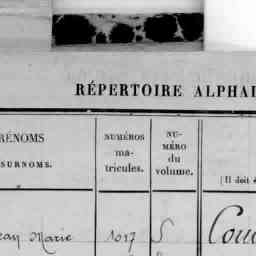 RÉPERTOIRE ALPHA
RÉNOMS
SURNOMS.
NUMÉROS
ma-
tricules.
NU-
MÉRO
du
volume.
(Il doit ê
ean Marie 1017 5